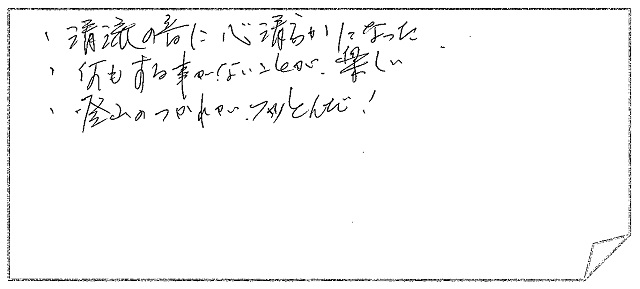 ・清流の音に心清らかになった
・何もする事がないことが、楽しい
・登山のつかれが、フッとんだ!